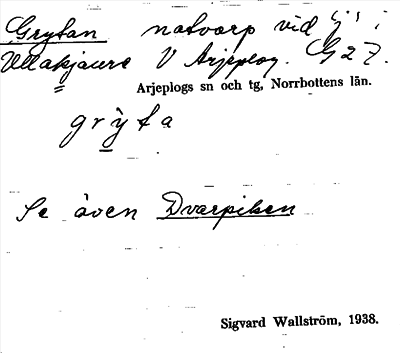 Grytan notvarp vid
Uddakjaure V Arjeplog. G 27.
Arjeplogs sn och tg, Norrbottens län.
grỳta
Se även Dvarpiken
Sigvard Wallström, 1938.